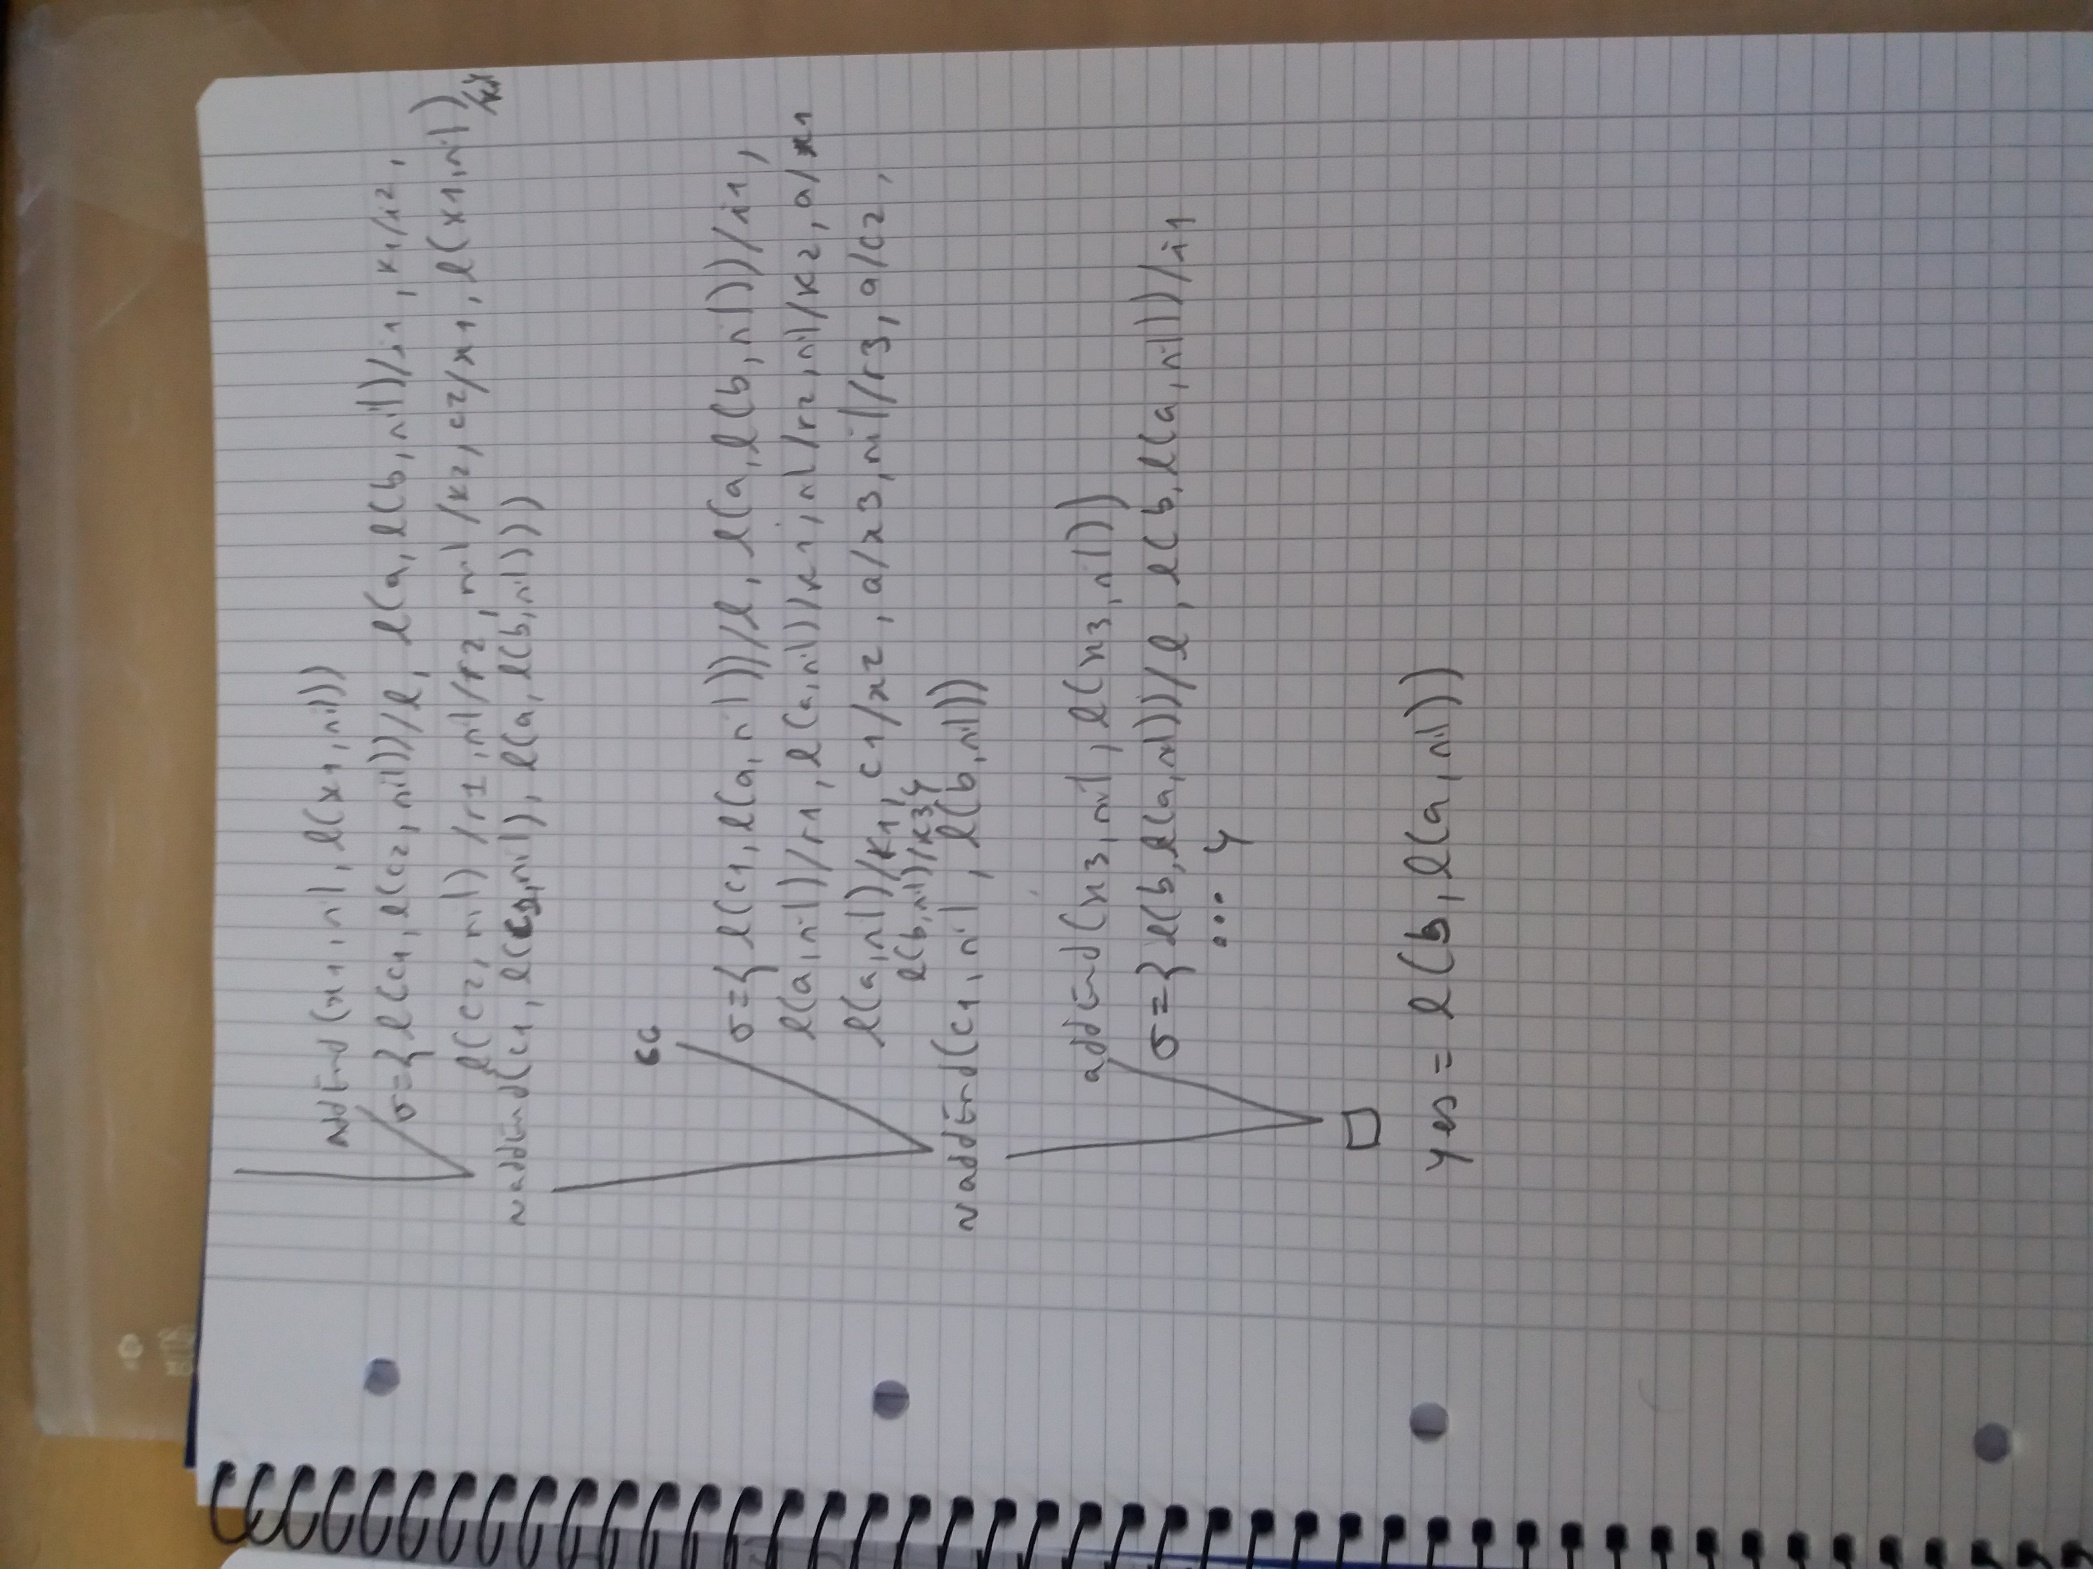 addEnd(x1, nil, l(x1, nil))
σ={ l(c1, l(c2, nil))/l, l(a, l(b, nil)/i1, k1/i2,
l(c2, nil)/r1, nil/r2, nil/k2, c2/x1, l(x1, nil)
¬addEnd(c1, l(c2, nil), l(a, l(b, nil)))
6c
σ={ l(c1, l(a, nil))/l, l(a, l(b, nil))/i1,
l(a, nil)/r1, l(a, nil)/k1, nil/r2, nil/k2, a/x1
l(a, nil)/k1, c1/x2, a/x3, nil/r3, a/c2,
l(b, nil)/k3}
¬addEnd(c1, nil, l(b, nil))
addEnd(x3, nil, l(x3, nil))
σ={ l(b, l(a, nil))/l, l(b, l(a, nil))/i1
... }
□
yes = l(b, l(a, nil))